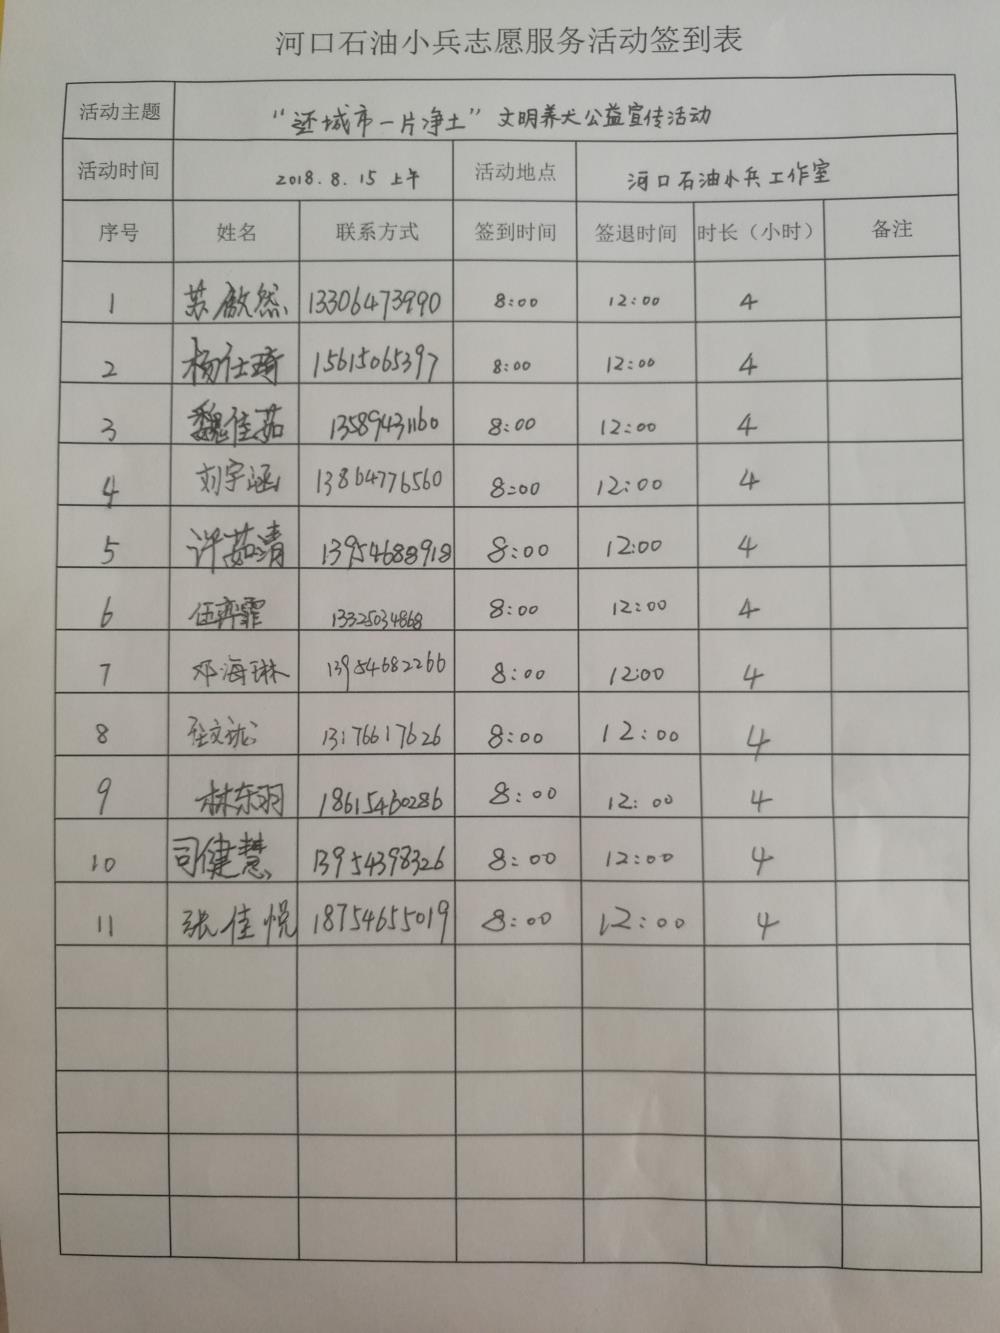 河口石油小兵志愿服务活动签到表
活动主题 “还城市一片净土”文明养犬公益宣传活动
活动时间 2018.8.15 上午 活动地点 河口石油小兵工作室
序号 姓名 联系方式 签到时间 签退时间 时长（小时） 备注
1 苏傲然 13306473990 8:00 12:00 4
2 杨仕琦 15615065397 8:00 12:00 4
3 魏佳茹 13589431160 8:00 12:00 4
4 刘宇涵 13864776560 8:00 12:00 4
5 许茹清 13954688918 8:00 12:00 4
6 伍弈霏 13325034868 8:00 12:00 4
7 邓海琳 13954682266 8:00 12:00 4
8 13176617626 8:00 12:00 4
9 林东羽 18615460286 8:00 12:00 4
10 司健慧 13954398326 8:00 12:00 4
11 张佳悦 18754655019 8:00 12:00 4